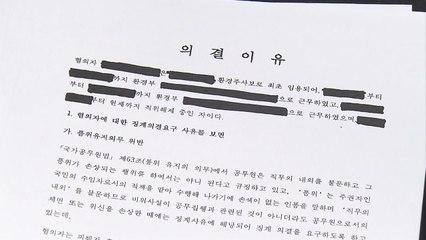 의 결 이 유
혐의자 은 환경주사보로 최초 임용되어, 부터
까지 환경부 으로 근무하였고,
부터 까지 환경부 으로 근무하였으며,
부터 현재까지 직위해제 중인 자이다.
1. 혐의자에 대한 징계의결요구 사유를 보면
가. 품위유지의무 위반
「국가공무원법」 제63조(품위 유지의 의무)에서 공무원은 직무의 내외를 불문하고 그
품위가 손상되는 행위를 하여서는 아니 된다고 규정하고 있고, '품위'는 주권자인
국민의 수임자로서의 직책을 맡아 수행해 나가기에 손색이 없는 인품을 말하며 '직무의
내외'를 불문하므로 비위사실이 공무집행과 관련된 것이 아니더라도 공무원으로서의
체면 또는 위신을 손상한 때에는 징계사유에 해당되어 징계 의결을 요구하도록 하고
있는데,
혐의자는 피해자